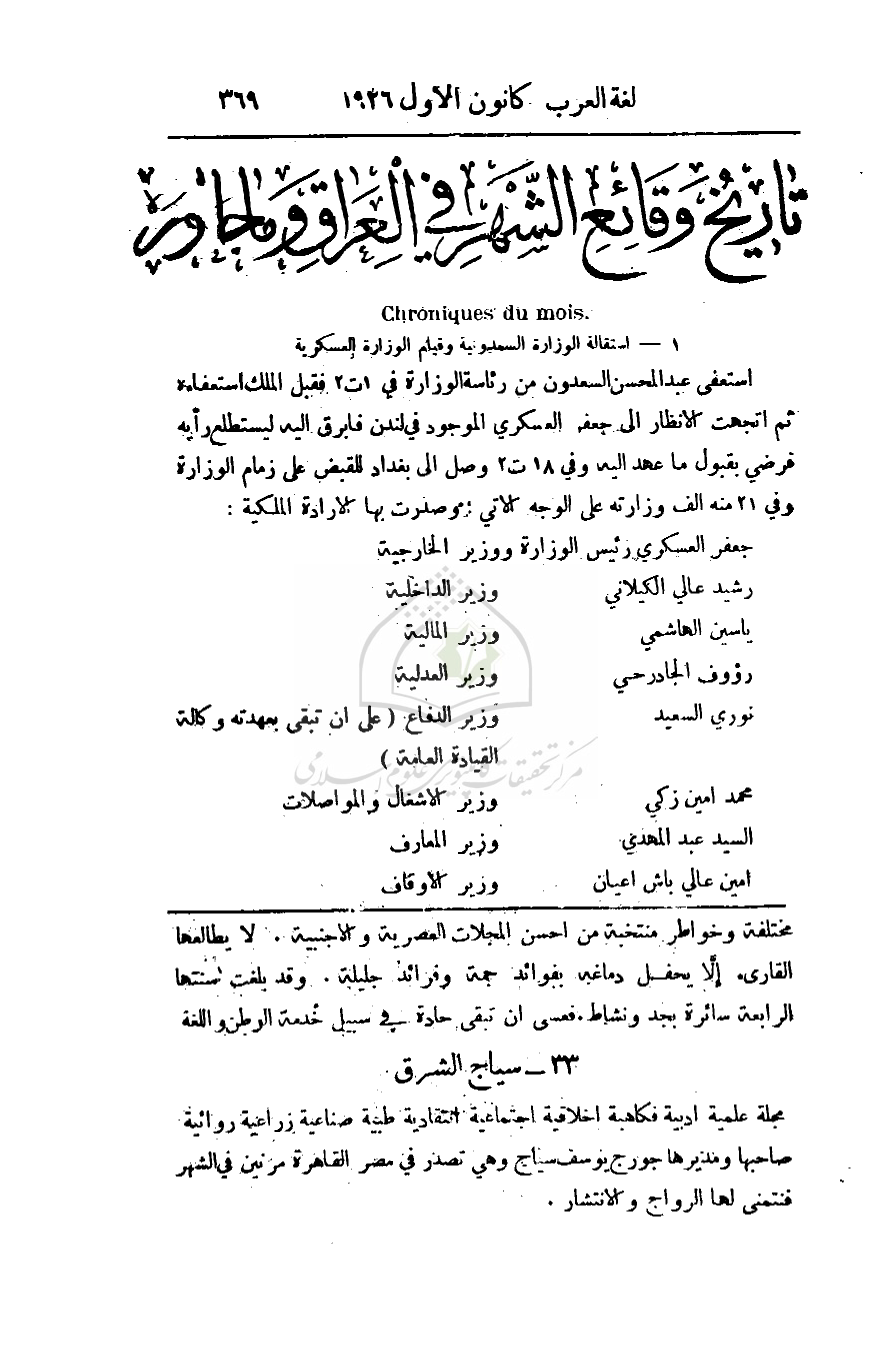 لغة العرب كانون الاول ١٩٢٦ ٣٦٩
تاريخ وقائع الشهر في العراق وما جاوره
Chroniques du mois.
١ — استقالة الوزارة السعدونية وقيام الوزارة العسكرية
استعفى عبد المحسن السعدون من رئاسة الوزارة في ١ ت٢ فقبل الملك استعفاءه
ثم اتجهت الانظار الى جعفر العسكري الموجود في لندن فابرق اليه ليستطلع رأيه
فرضي بقبول ما عهد اليه وفي ١٨ ت٢ وصل الى بغداد للقبض على زمام الوزارة
وفي ٢١ منه الف وزارته على الوجه الآتي وصدرت بها الارادة الملكية :
جعفر العسكري رئيس الوزارة ووزير الخارجية
رشيد عالي الكيلاني وزير الداخلية
ياسين الهاشمي وزير المالية
رؤوف الجادرجي وزير العدلية
نوري السعيد وزير الدفاع ( على ان تبقى بعهدته وكالة
القيادة العامة )
محمد امين زكي وزير الاشغال والمواصلات
السيد عبد المهدي وزير المعارف
امين عالي باش اعيان وزير الاوقاف
مركز تحقيقات كامپيوتری علوم اسلامی
مختلفة وخواطر منتخبة من احسن المجلات العصرية والاجنبية . لا يطالعها
القارىء إلّا يحفل دماغه بفوائد جمة وفرائد جليلة . وقد بلغت سنتها
الرابعة سائرة بجد ونشاط . فعسى ان تبقى جادة في سبيل خدمة الوطن واللغة
٣٣ ـ سياج الشرق
مجلة علمية ادبية فكاهية اخلاقية اجتماعية انتقادية طبية صناعية زراعية روائية
صاحبها ومديرها جورج يوسف سياج وهي تصدر في مصر القاهرة مرتين في الشهر
فنتمنى لها الرواج والانتشار .